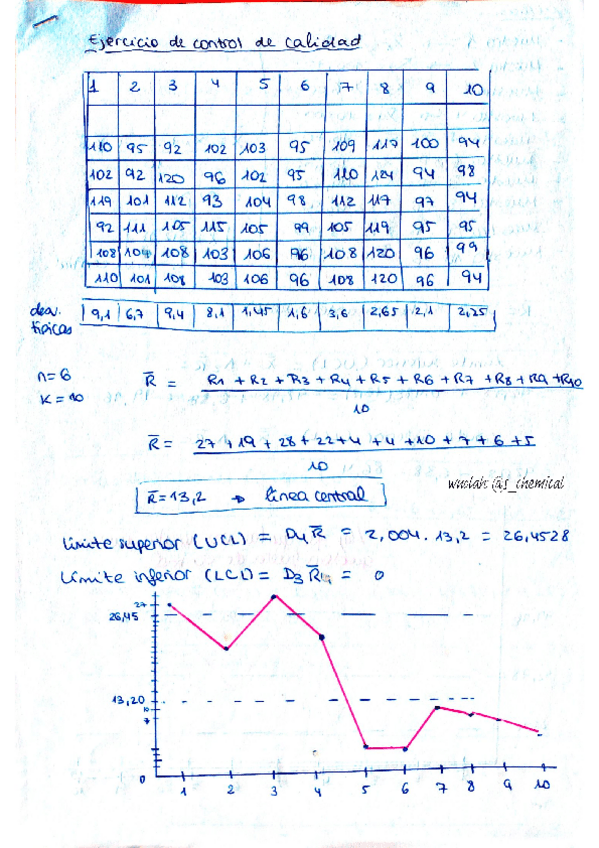 Ejercicio de control de calidad
1 2 3 4 5 6 7 8 9 10
110 95 92 102 103 95 109 117 100 94
102 92 120 96 102 95 110 124 94 98
119 101 112 93 104 98 112 117 97 94
92 111 105 115 105 99 105 119 95 95
108 104 108 103 106 96 108 120 96 99
110 101 108 103 106 96 108 120 96 94
desv. típicas 9,1 6,7 9,4 8,1 1,45 1,6 3,6 2,65 2,1 2,25
n=6
K=10
R̅ = R1 + R2 + R3 + R4 + R5 + R6 + R7 + R8 + R9 + R10
10
R̅ = 27 + 19 + 28 + 22 + 4 + 4 + 10 + 7 + 6 + 5
10
R̅ = 13,2 → línea central
wuolah: @s_chemical
Límite superior (UCL) = D4 R̅ = 2,004 · 13,2 = 26,4528
Límite inferior (LCL) = D3 R̅ = 0
27
26,45
13,20
10
7
0
1 2 3 4 5 6 7 8 9 10